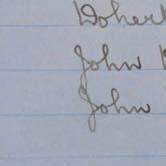 Dohert
John
John